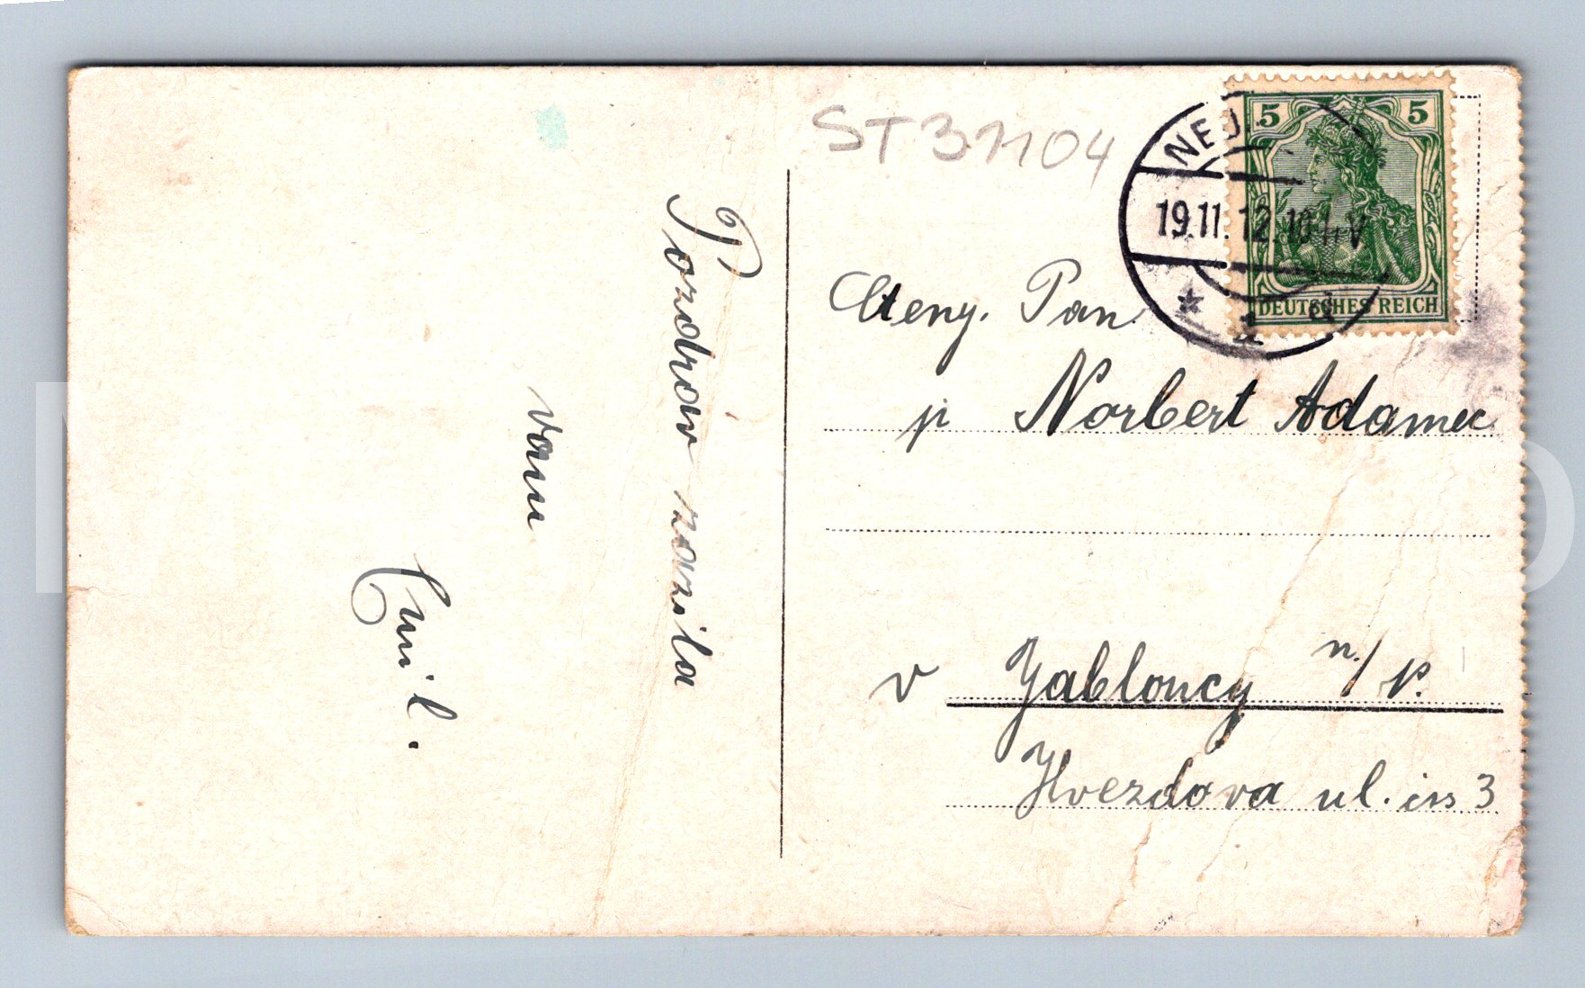 Pozdrav zasila
vam
Emil.
ST31104
NE
19.11.12.10-11V
* 1
5 5
DEUTSCHES REICH
Cteny. Pan.
p Norbert Adamec
v Jabloncy n./p.
Hvezdova ul. čis 3